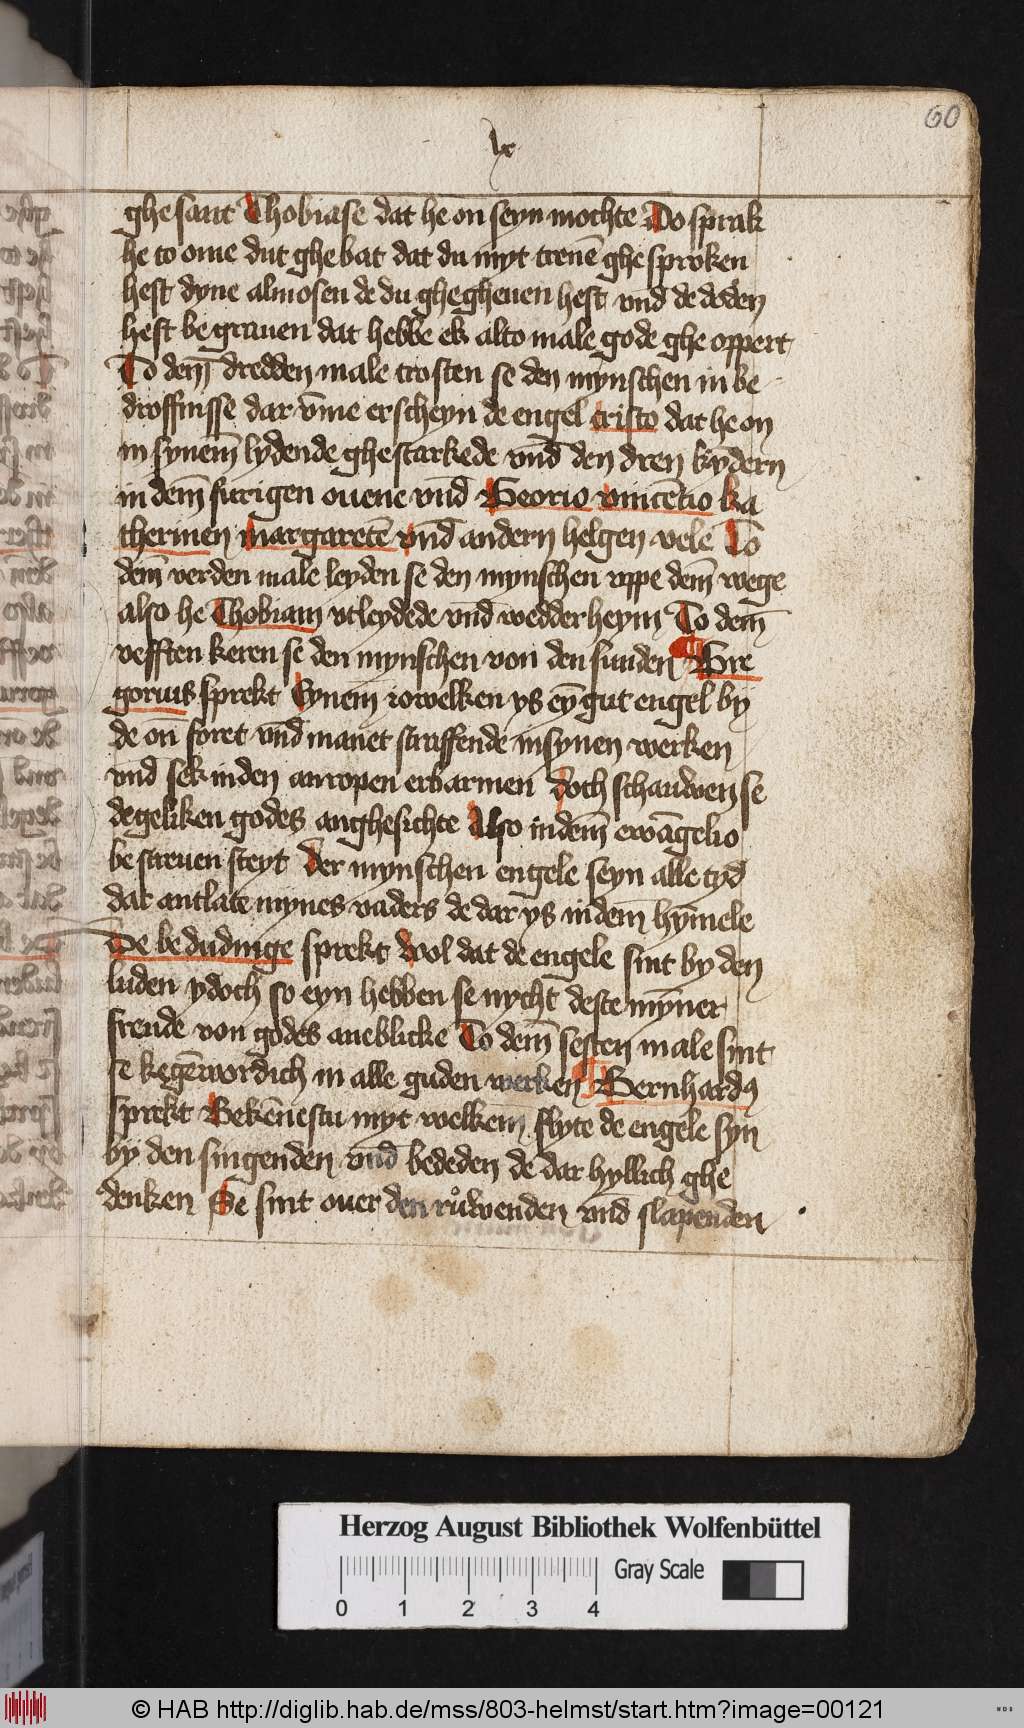 60
lx
ghesant Thobiase dat he on seyn mochte Do sprak
he to ome dut ghebat dat du myt trenē ghe sproken
hest dyne almosen de du ghegheuen hest vnd̄ de doden
hest be grauen dat hebbe ek alto male gode ghe oppert
To dem̄ dredden male trosten se den mynschen in be
droffnisse dar v̄me erscheyn de engel cristo dat he on
in synem̄ lydende ghestarkede vnd̄ den dren kyndern
in dem̄ furigen ouene vnd̄ Georio vincētio ka
therinen margaretē vnd̄ andern helgen vele To
dem̄ verden male leyden se den mynschen vppe dem̄ wege
also he Thobiam vtleydede vnd̄ wedder heym To dem̄
vefften keren se den mynschen von den sunden Gre
gorius sprekt Eynem̄ iowelken ys eȳ gut engel by
de on̄ foret vnd̄ manet straffende in synen werken
vnd̄ sek in den anropen erbarmen doch schauwen se
degeliken godes anghesichte Also in dem̄ ewāgelio
be screuen steyt der mynschen engele seyn alle tyd
dat antlate mynes vaders de dar ys in dem̄ hȳmele
De bedudinge sprekt wol dat de engele sint by den
luden ydoch so eyn hebben se nycht deste mȳner
freude von godes aneblicke To dem̄ sesten male sint
se kegēwordich in alle guden werken Bernhardꝰ
sprekt Bekēnestu myt welkem flyte de engele syn
by den singenden vnd̄ bededen de dar hyllich ghe
denken Se sint ouer den růwenden vnd̄ slapenden
Herzog August Bibliothek Wolfenbüttel
Gray Scale
0 1 2 3 4
© HAB http://diglib.hab.de/mss/803-helmst/start.htm?image=00121